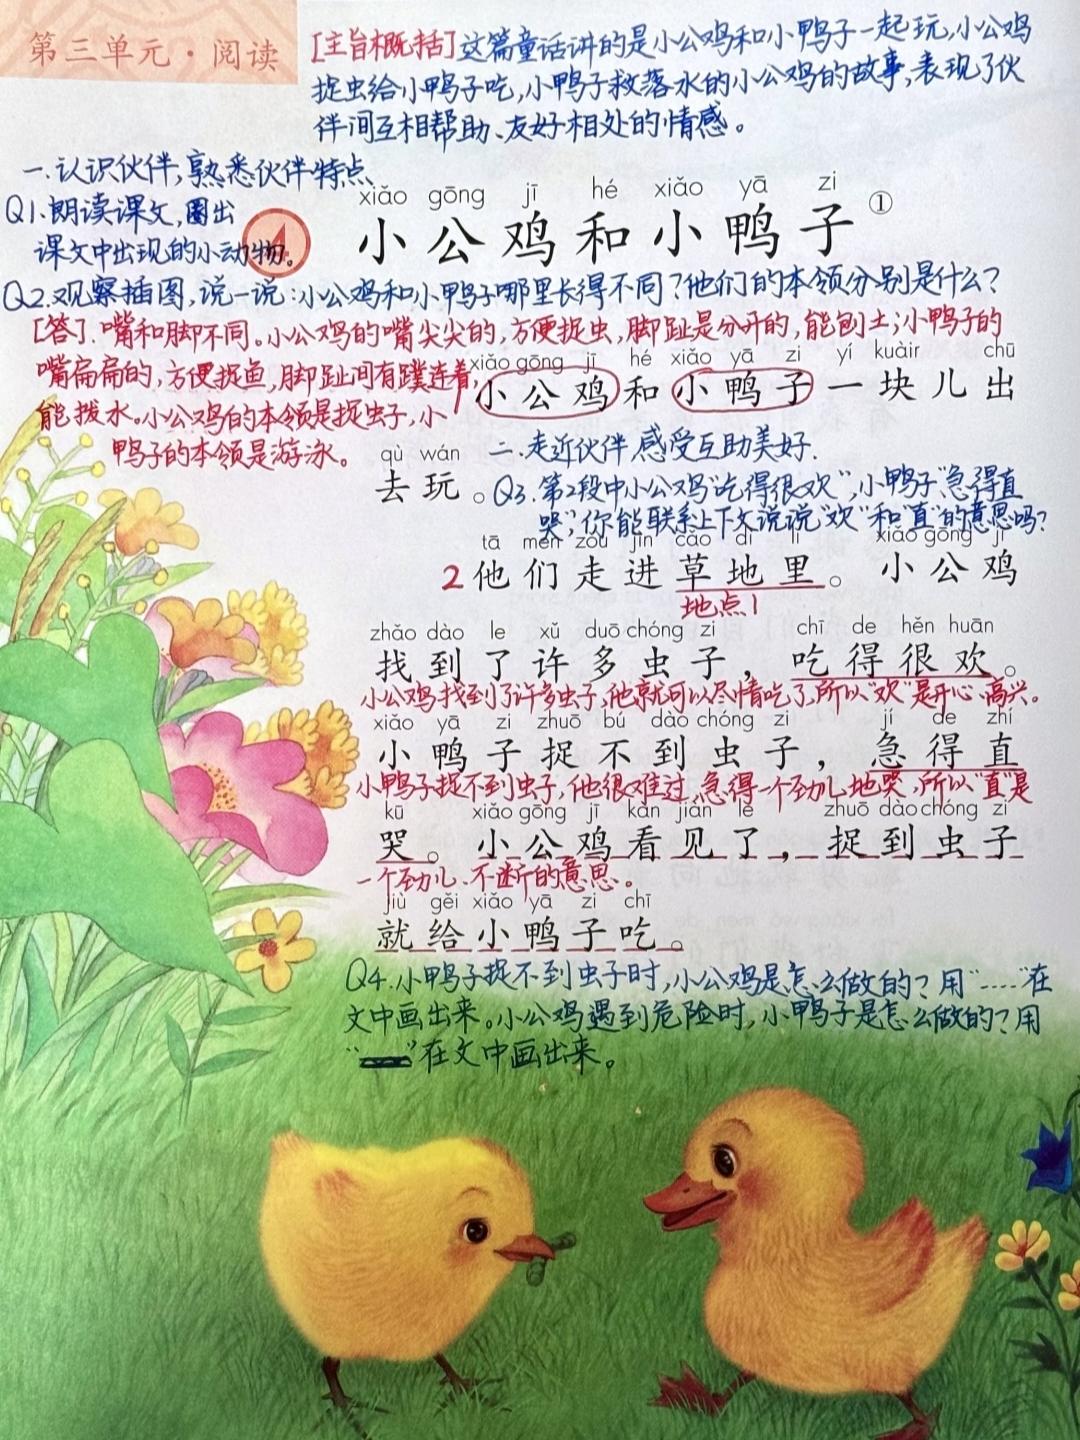 第三单元·阅读
[主旨概括]这篇童话讲的是小公鸡和小鸭子一起玩,小公鸡
捉虫给小鸭子吃,小鸭子救落水的小公鸡的故事,表现了伙
伴间互相帮助、友好相处的情感。
一.认识伙伴,熟悉伙伴特点
Q1.朗读课文,圈出
课文中出现的小动物。
4
xiǎo gōng jī hé xiǎo yā zi
小公鸡和小鸭子①
Q2.观察插图,说一说:小公鸡和小鸭子哪里长得不同?他们的本领分别是什么?
[答].嘴和脚不同。小公鸡的嘴尖尖的,方便捉虫,脚趾是分开的,能刨土;小鸭子的
嘴扁扁的,方便捉鱼,脚趾间有蹼连着,
能拨水。小公鸡的本领是捉虫子,小
鸭子的本领是游泳。
xiǎo gōng jī hé xiǎo yā zi yí kuàir chū
1小公鸡和小鸭子一块儿出
二.走近伙伴,感受互助美好.
qù wán
去玩。
Q3.第2段中小公鸡“吃得很欢”,小鸭子“急得直
哭”,你能联系上下文说说“欢”和“直”的意思吗?
tā men zǒu jìn cǎo dì li xiǎo gōng jī
2他们走进草地里。小公鸡
地点1
zhǎo dào le xǔ duō chóng zi chī de hěn huān
找到了许多虫子,吃得很欢。
小公鸡找到了许多虫子,他就可以尽情吃了,所以“欢”是开心、高兴。
xiǎo yā zi zhuō bú dào chóng zi jí de zhí
小鸭子捉不到虫子,急得直
小鸭子捉不到虫子,他很难过,急得一个劲儿地哭,所以“直”是
kū xiǎo gōng jī kàn jiàn le zhuō dào chóng zi
哭。小公鸡看见了,捉到虫子
一个劲儿、不断的意思。
jiù gěi xiǎo yā zi chī
就给小鸭子吃。
Q4.小鸭子捉不到虫子时,小公鸡是怎么做的?用“----”在
文中画出来。小公鸡遇到危险时,小鸭子是怎么做的?用
“——”在文中画出来。